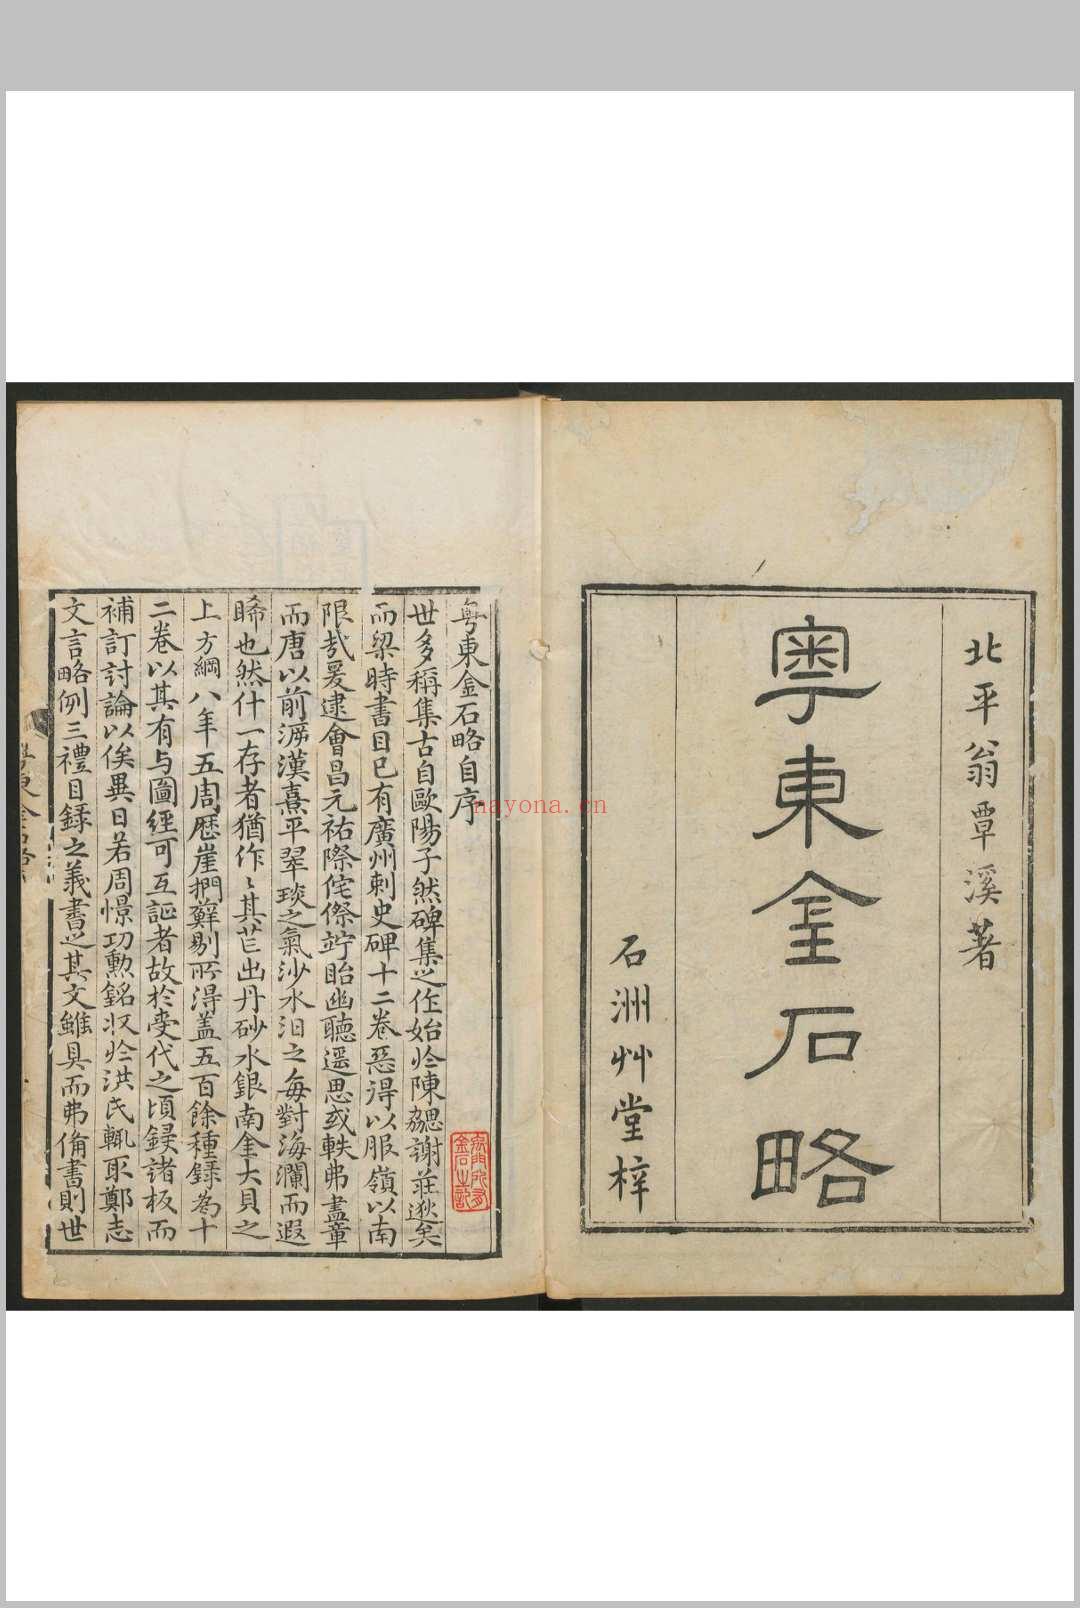 北平翁覃溪著
粤東金石略
石洲艸堂梓
粤東金石略自序
世多稱集古自歐陽子然碑集之作始於陳勰謝莊逖矣
而梁時書目已有廣州刺史碑十二卷惡得以服嶺以南
限哉爰逮會昌元祐際侘傺竚眙幽聽遥思或軼弗盡章
而唐以前泝漢熹平翠琰之氣沙水汨之每對海瀾而遐
睎也然什一存者猶作作其芒出丹砂水銀南金大貝之
上方綱八年五周歷崖捫蘚剔所得盖五百餘種録為十
二卷以其有与圖經可互証者故於受代之頃録諸板而
補訂討論以俟異日若周憬功勲銘収於洪氏輒取鄭志
文言略例三禮目録之義書之其文雖具而弗僃書則世
nayona.cn